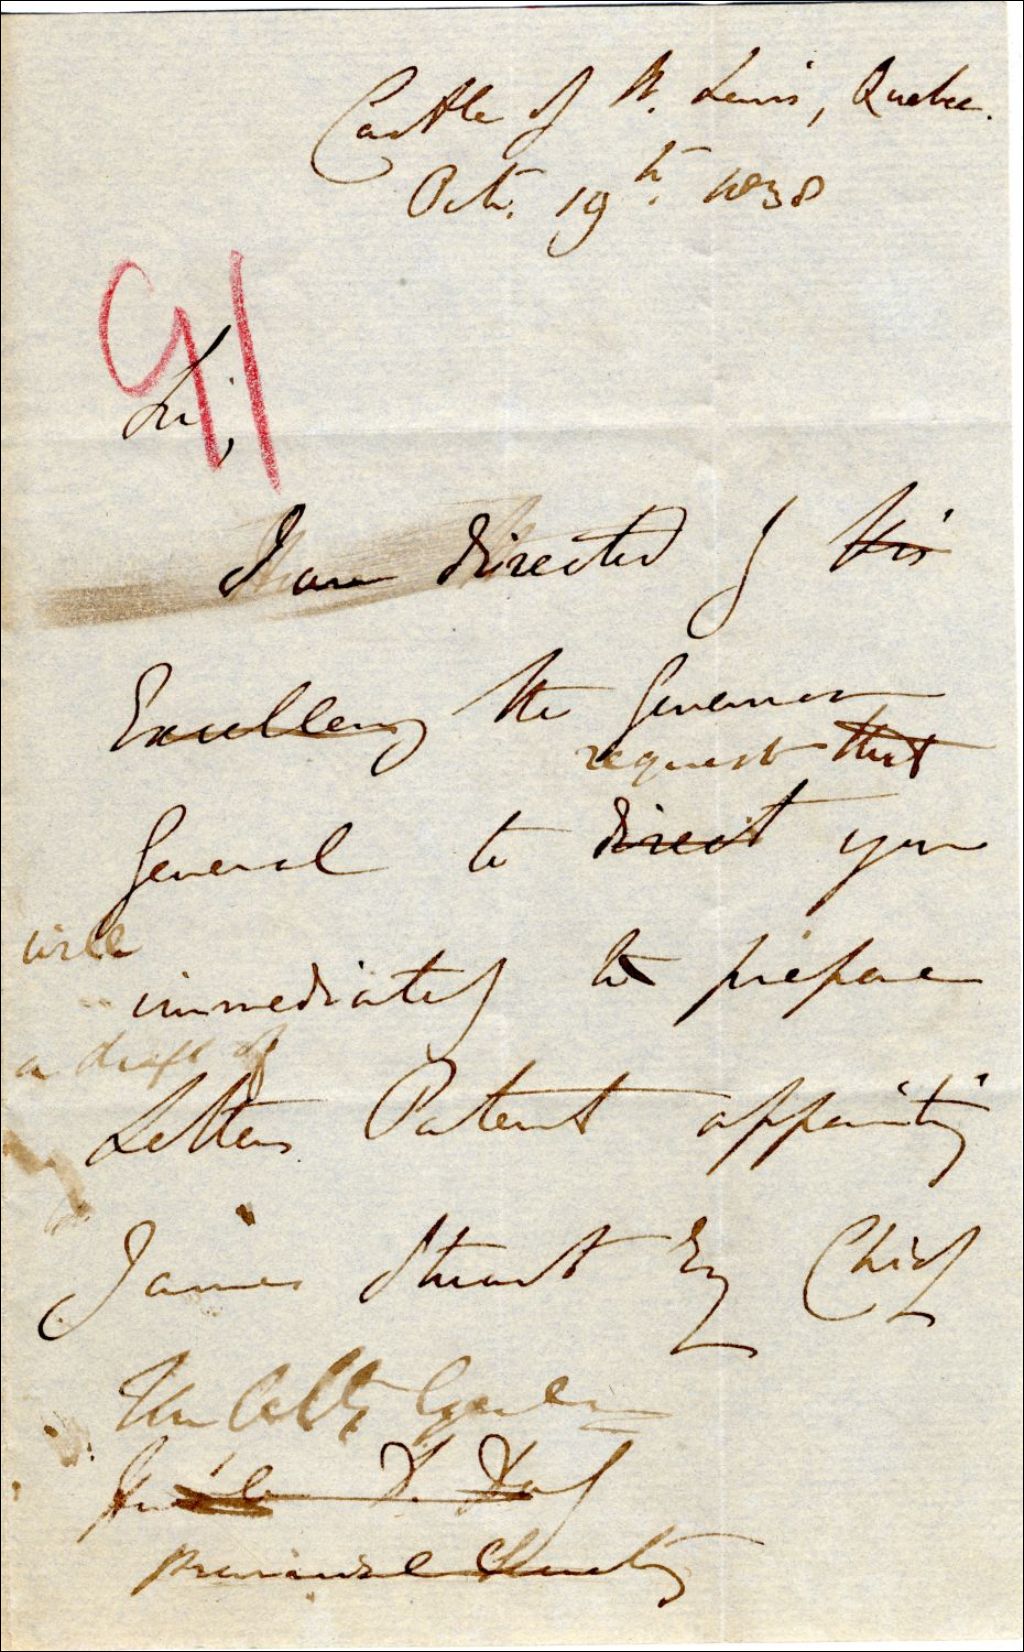 Castle of St. Lewis, Quebec.
Octr. 19th. 1838
91
Sir,
I am directed by His
Excellency the Governor
request that
General to direct you
will
immediately to prepare
a draft of
Letters Patent appointing
James Stuart Esq Chief
The Atty General
D. Daly
Provincial Secretary